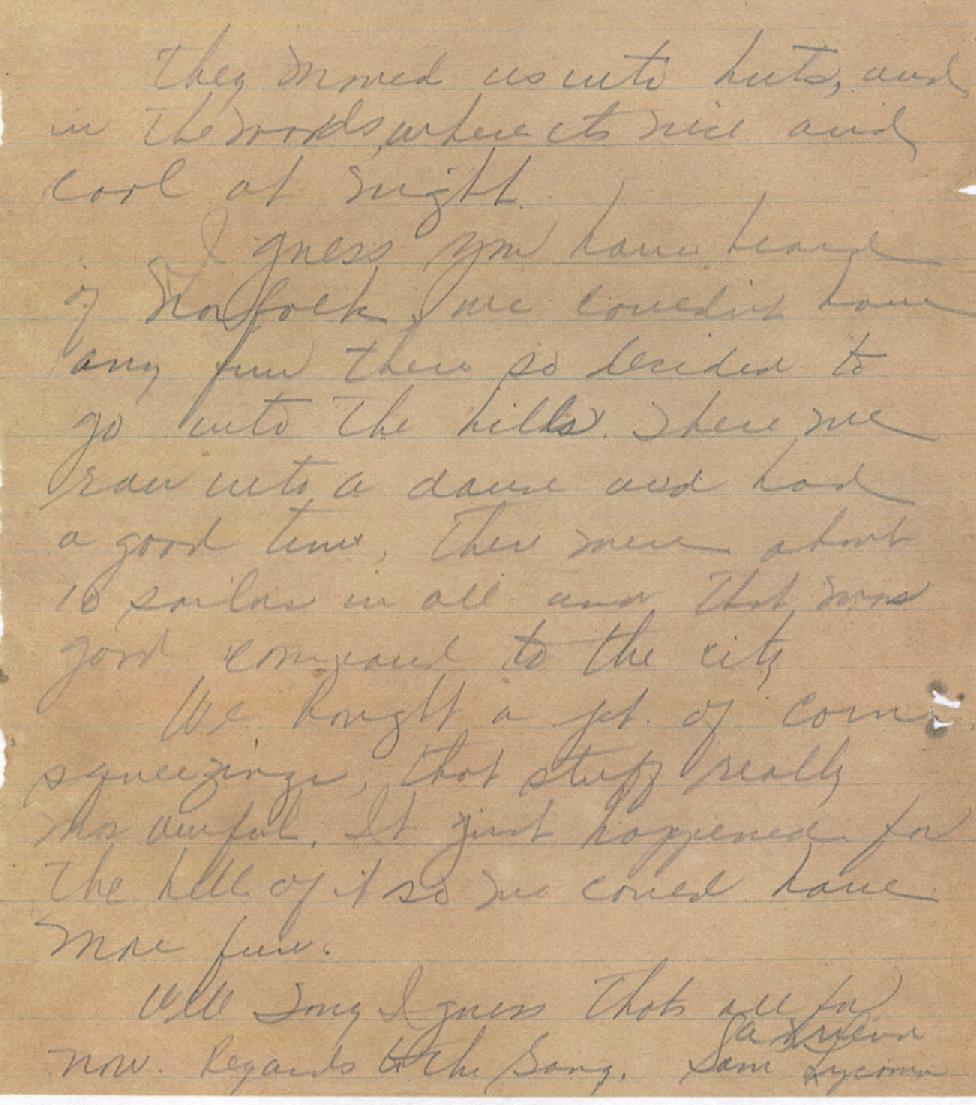 They moved us into huts, and
in the woods, where its nice and
cool at night.
I guess you have heard
of Norfolk, we couldn't have
any fun there so decided to
go into the hills. There we
ran into a dance and had
a good time. There were about
sailors in all and that was
good compared to the city
We bought a pt. of corn
squeezings, that stuff really
was awful. It just happened for
the hell of it so we could have
more fun.
Well I guess thats all for
now. Regards to the Gang.
a friend
Sam